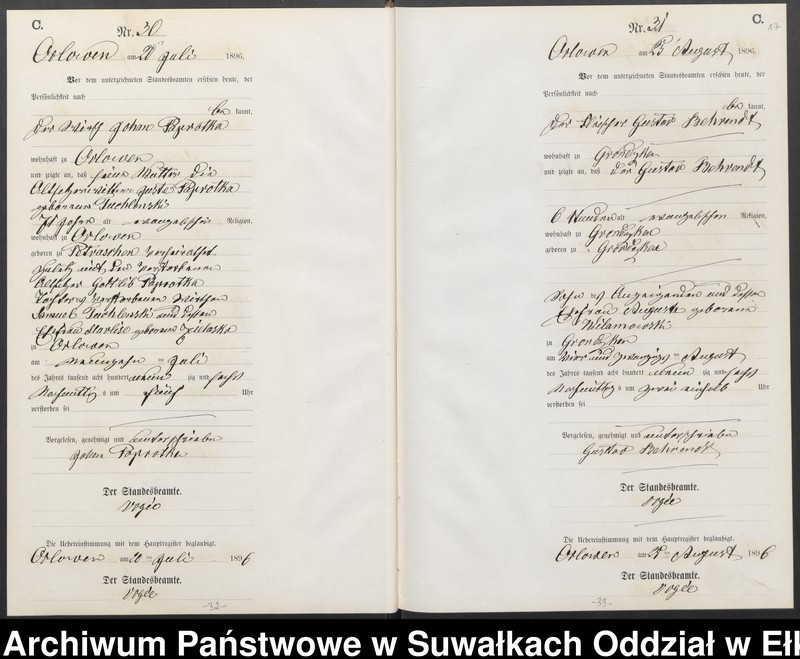 C.
Nr. 30
Orlowen am 20 Juli 1896.
Vor dem unterzeichneten Standesbeamten erschien heute, der
Persönlichkeit nach
be kannt,
der Wirth Johan Paprotka
wohnhaft zu Orlowen
und zeigte an, daß seine Mutter die
Altsitzerwittwe Guste Paprotka
geborene Suchlenski
Jahr alt evangelischer Religion,
wohnhaft zu Orlowen
geboren zu Petraschen verheirathet
zuletz mit dem verstorbenen
Altsitzer Gottlib Paprotka
Tochter des verstorbenen Wirthen
Samuel Suchlenski und dessen
Ehefrau
geborene
zu Orlowen
am neunzehn ten Juli
des Jahres tausend acht hundert neun zig und sechs
Nachmittags um fünf Uhr
verstorben sei
Vorgelesen, genehmigt und unterschrieben
Johan Paprotka
Der Standesbeamte.
Vogée
Die Uebereinstimmung mit dem Hauptregister beglaubigt.
Orlowen am 20 ten Juli 1896
Der Standesbeamte.
Vogée
-32-
C.
17
Nr. 31
Orlowen am 25 August 1896.
Vor dem unterzeichneten Standesbeamten erschien heute, der
Persönlichkeit nach
be kannt,
der Gustav Behrendt
wohnhaft zu Grondzken
und zeigte an, daß der Gustav Behrendt
6 Stunden alt evangelischen Religion,
wohnhaft zu Grondzken
geboren zu Grondzken
Sohn des Anzeigenden und dessen
Ehefrau Auguste geborene
Milanowski
zu Grondzken
am vier und zwanzigs ten August
des Jahres tausend acht hundert neun zig und sechs
Nachmittags um zwei einhalb Uhr
verstorben sei
Vorgelesen, genehmigt und unterschrieben
Gustav Behrendt
Der Standesbeamte.
Vogée
Die Uebereinstimmung mit dem Hauptregister beglaubigt.
Orlowen am 25 ten August 1896
Der Standesbeamte.
Vogée
-33-
Archiwum Państwowe w Suwałkach Oddział w Ełk